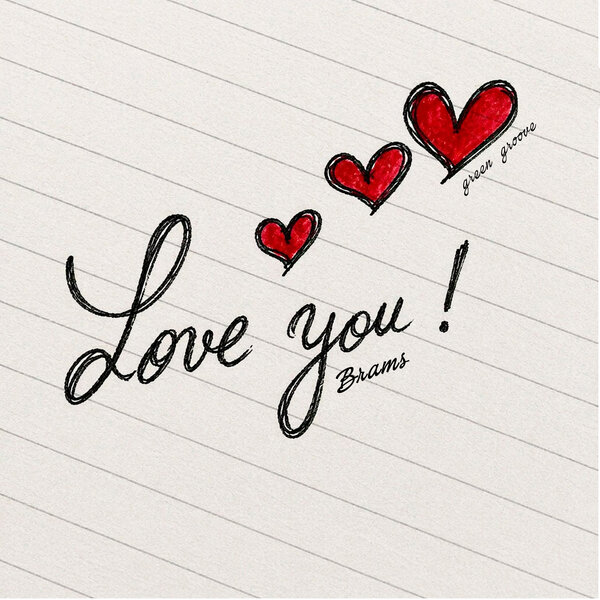 green groove
Love you !
Brams